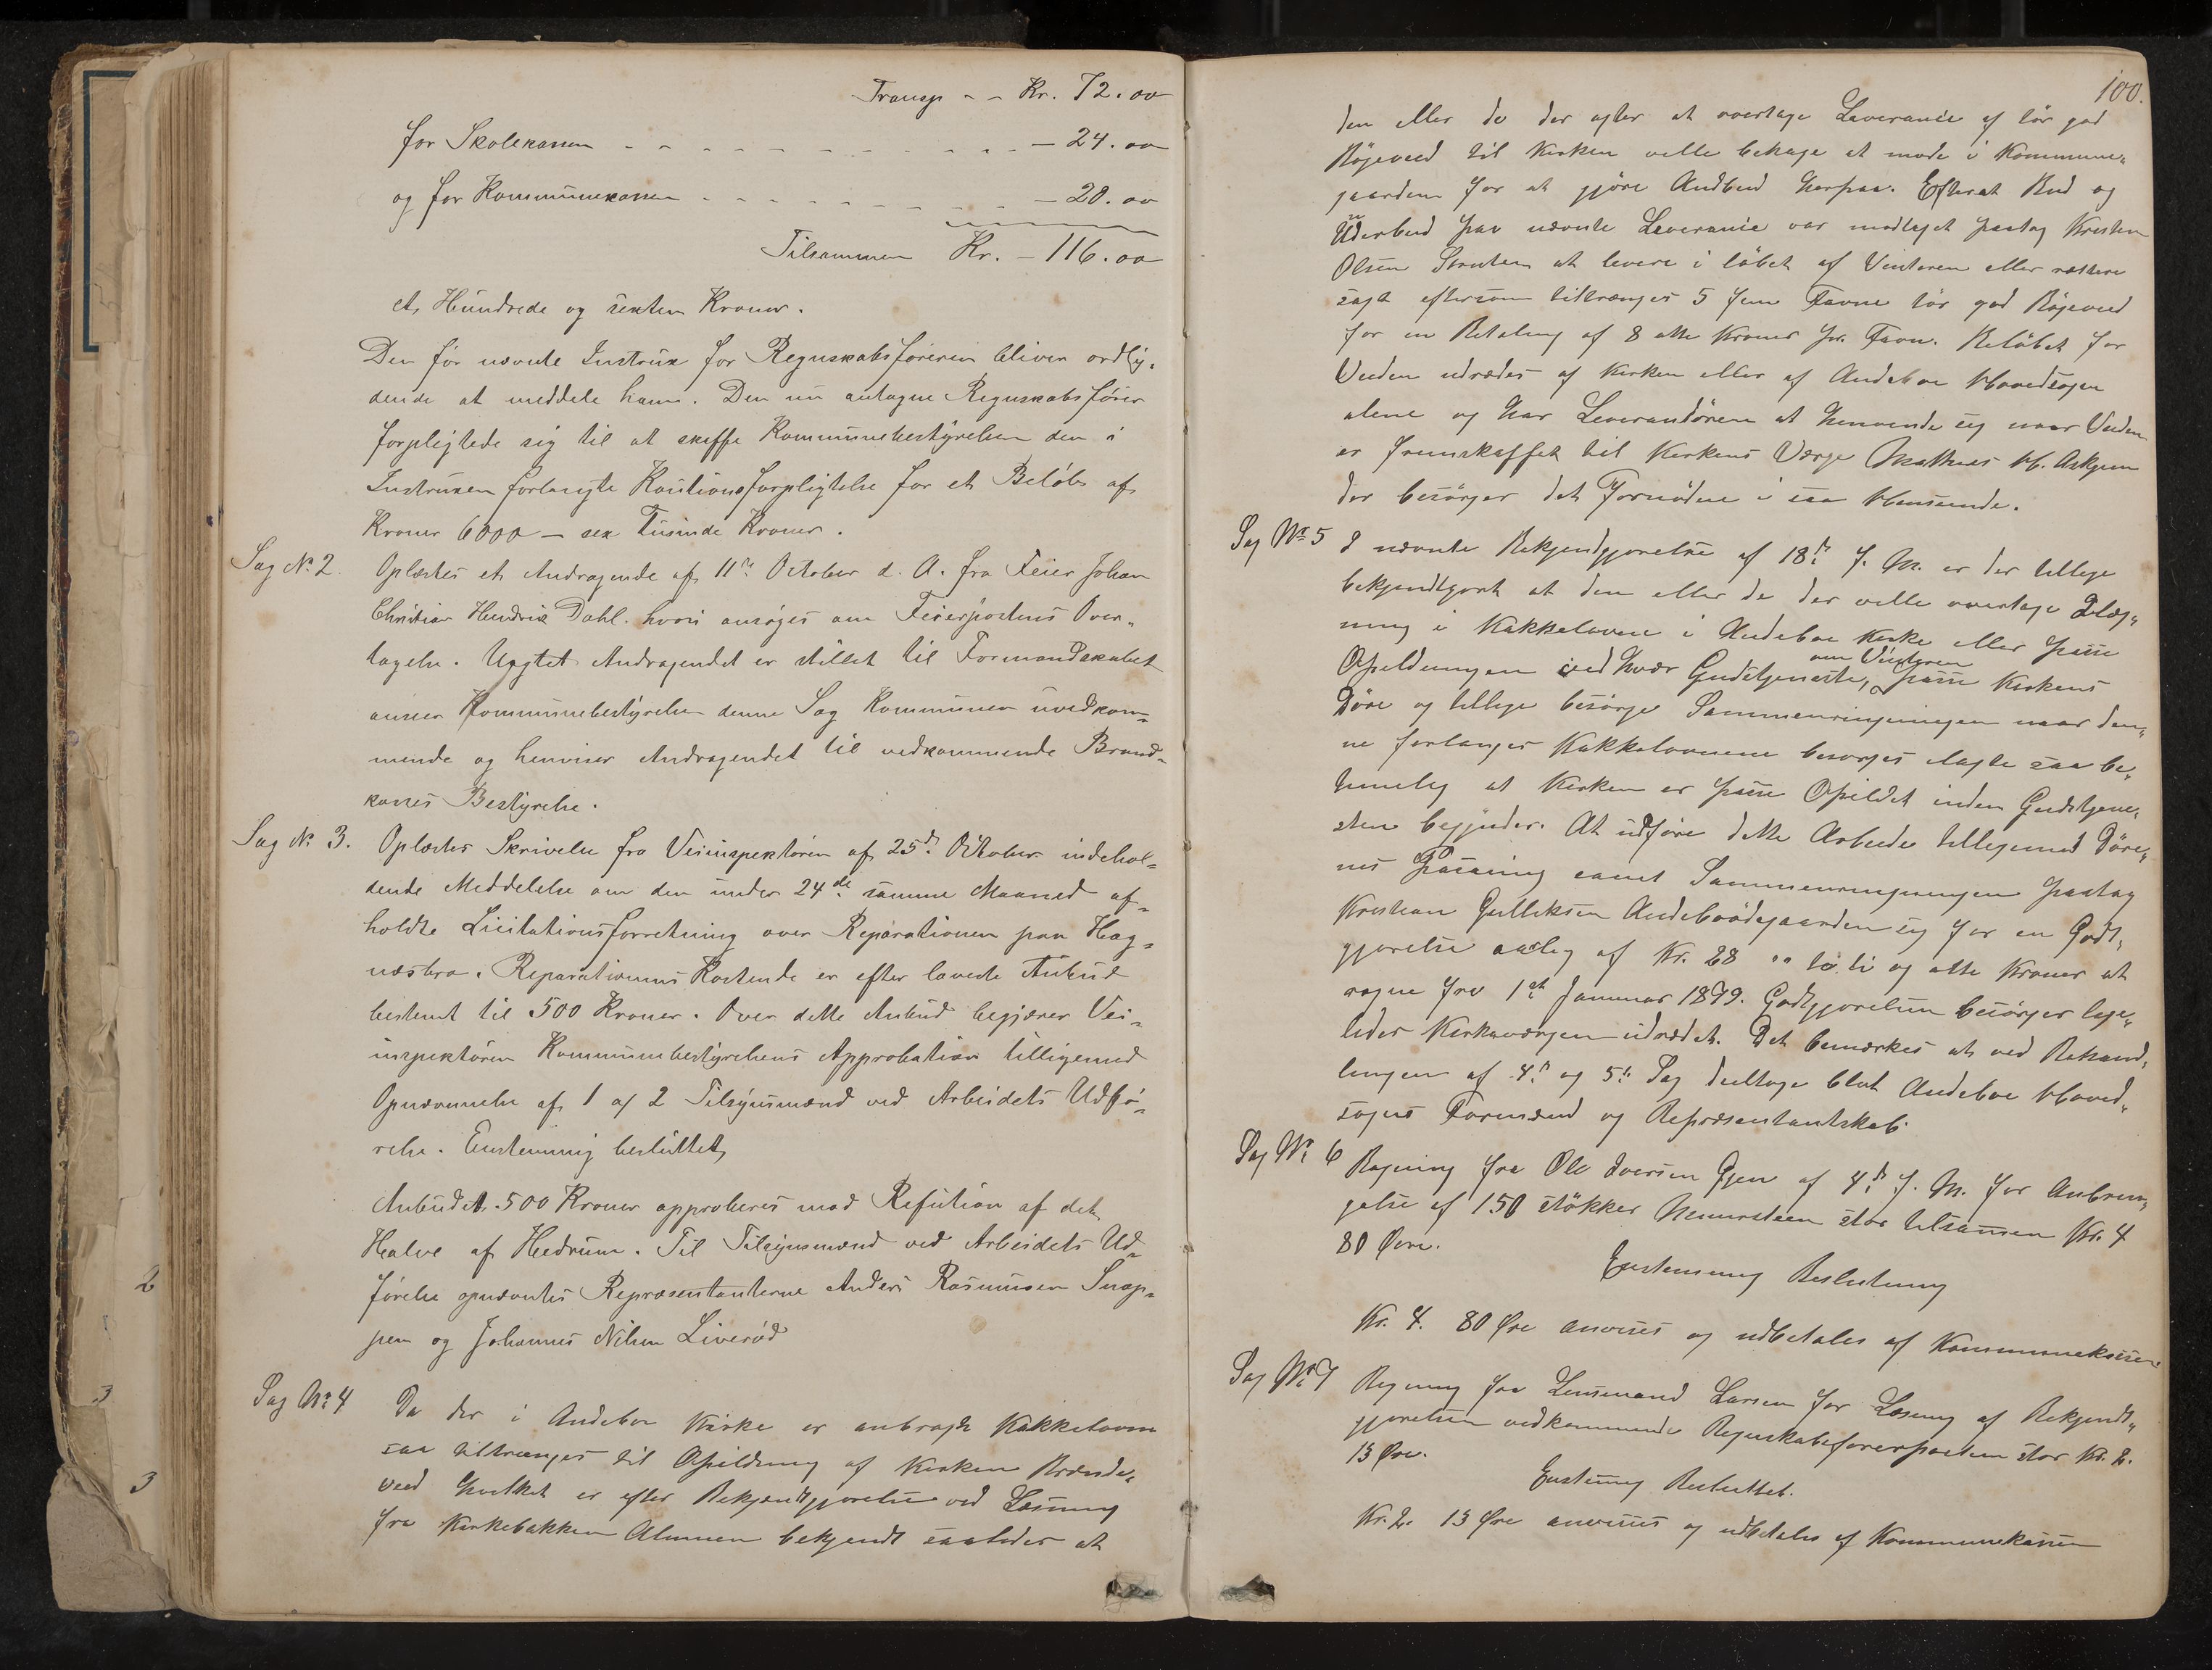 Transp - - Kr. 72.00
for Skolekassen - - - - - - - - - - - - - 24.00
og for Kommunekassen - - - - - - - - - - - 20.00
Tilsammen Kr. - 116.00
et Hundrede og sexten Kroner.
Den før nævnte Instrux for Regnskabsføreren bliver ordly-
dende at meddele ham. Den nu antagne Regnskabsfører
forpligtede sig til at skaffe Kommunebestyrelsen den i
Instruxen forlangte Kautionsforpligtelse for et Beløb af
Kroner 6000 – sex Tusinde Kroner.
Sag No 2. Oplæstes et Andragende af 11te October d. A. fra Feier Johan
Christian Hendrik Dahl. hvori ansøges om Feierpostens Over-
tagelse. Uagtet Andragendet er stillet til Formandskabet
anser Kommunebestyrelsen denne Sag Kommunen uvedkom-
mende og henviser Andragendet til vedkommende Brand-
kasses Bestyrelse.
Sag No 3. Oplæstes Skrivelse fra Veiinspektøren af 25de Oktober indehol-
dende Meddelelse om den under 24de samme Maaned af-
holdte Licitationsforretning over Reparationen paa Hag-
næsbro. Reparationens Kostende er efter lavede Anbud
bestemt til 500 Kroner. Over dette Anbud begjærer Vei-
inspektøren Kommunebestyrelsens Approbation tilligemed
Opnævnelse af 1 a 2 Tilsynsmænd ved Arbeidets Udfø-
relse. Enstemmig besluttet,
Anbudet 500 Kroner approberes mod Refution af det
Halve af Hedrum. Til Tilsynsmænd ved Arbeidets Ud-
førelse opnævntes Repræsentanterne Anders Rasmussen Snap-
pen og Johannes Nilsen Liverød
Sag No 4 Da der i Andebu Kirke er anbragt Kakkelovne
saa tiltrænges til Opildning af Kirken Brænde-
veed hvilket er efter Bekjendtgjørelse ved Læsning
fra Kirkebakken Almuen bekjendt saaledes at
100.
den eller de der agter at overtage Leverance af tør god
Bøgeveed til Kirken ville behage at møde i Kommune-
gaarden for at gjøre Andbud herpaa. Efterat Bud og
Underbud paa nævnte Leverance var modtaget paatog Kristen
Olsen at levere i løbet af Vinteren eller rettere
sagt eftersom tiltrænges 5 fem Favne tør god Bøgeveed
for en Betaling af 8 otte Kroner pr. Favn. Beløbet for
Veeden udredes af Kirken eller af Andebu Hovedsogn
alene og har Leverandøren at henvende sig naar Veeden
er fremskaffet til Kirkens Værge Mathias H. Askjem
der besørger det Fornødne i saa Henseende.
Sag No 5 I nævnte Bekjendtgjørelse af 18de f. M. er der tillige
bekjendtgjort at den eller de der ville overtage Ilæg-
ning i Kakkelovne i Andebu Kirke eller passe
Opildningen ved hver Gudstjeneste, om Vinteren passe Kirkens
Døre og tillige besørge Sammenringningen naar den-
ne forlanges Kakkelovnene besørges ilagte saa be-
timelig at Kirken er passe Opildet inden Gudstjene-
sten begynder. At udføre dette Arbeide tilligemed Døre-
nes Pasning samt Sammenringningen paatog
Kristian Gulliksen Andebuødegaarden sig for en Godt-
gjørelse aarlig af Kr. 28 to ti og otte Kroner at
regne fra 1ste Januar 1879. Godtgjørelsen besørges lige-
ledes Kirkeværgen udredet. Det bemærkes at ved Behand-
lingen af 4de og 5te Sag deeltoge blot Andebu Hoved-
sogns Formænd og Repræsentantskab.
Sag No 6 Regning fra Ole Iversen Gjen af 4de f. M. for Anbrin-
gelse af 150 støkker stor tilsammen Kr. 4
80 Øre.
Enstemmig Beslutning
Kr. 4. 80 Øre anvises og udbetales af Kommunekassen
Sag No 7 Regning fra Lensmand Larsen for Læsning af Bekjendt-
gjørelsen vedkommende Regnskabsførerposten stor Kr. 2.
13 Øre.
Enstemig Besluttet.
Kr. 2. 13 Øre anvises og udbetales af Kommunekassen
2
3
3